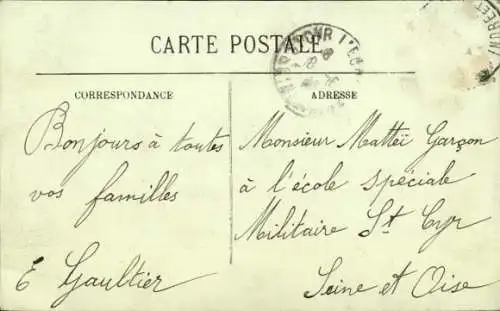 CARTE POSTALE
CORRESPONDANCE
Bonjours à toutes
vos familles
E Gaultier
ADRESSE
Monsieur Matteï Garçon
à l'école spéciale
Militaire St Cyr
Seine et Oise